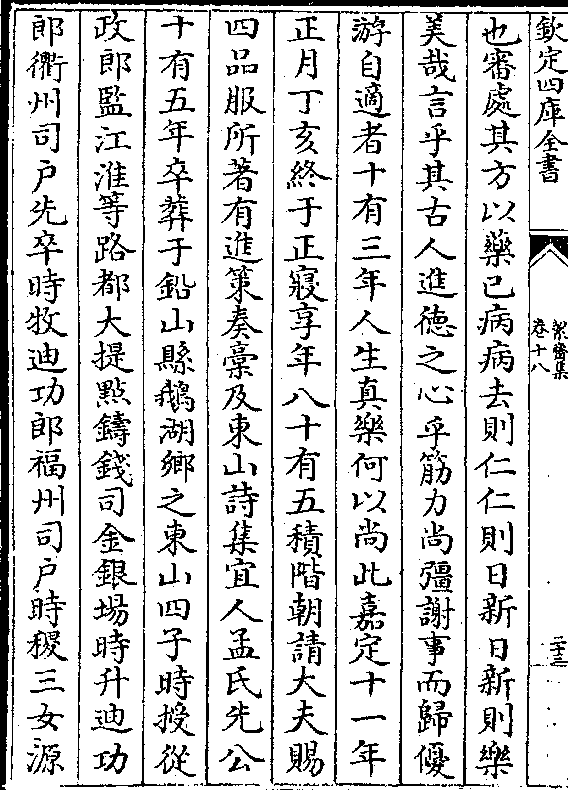 欽定四庫全書
絜齋集
卷十八
二十三
也審處其方以藥已病病去則仁仁則日新日新則樂
美哉言乎其古人進德之心乎筋力尚彊謝事而歸優
游自適者十有三年人生真樂何以尚此嘉定十一年
正月丁亥終于正寢享年八十有五積階朝請大夫賜
四品服所著有進策奏稾及東山詩集宜人孟氏先公
十有五年卒葬于鉛山縣鵝湖鄉之東山四子時授從
政郎監江淮等路都大提點鑄錢司金銀場時升迪功
郎衢州司户先卒時牧迪功郎福州司户時稷三女源